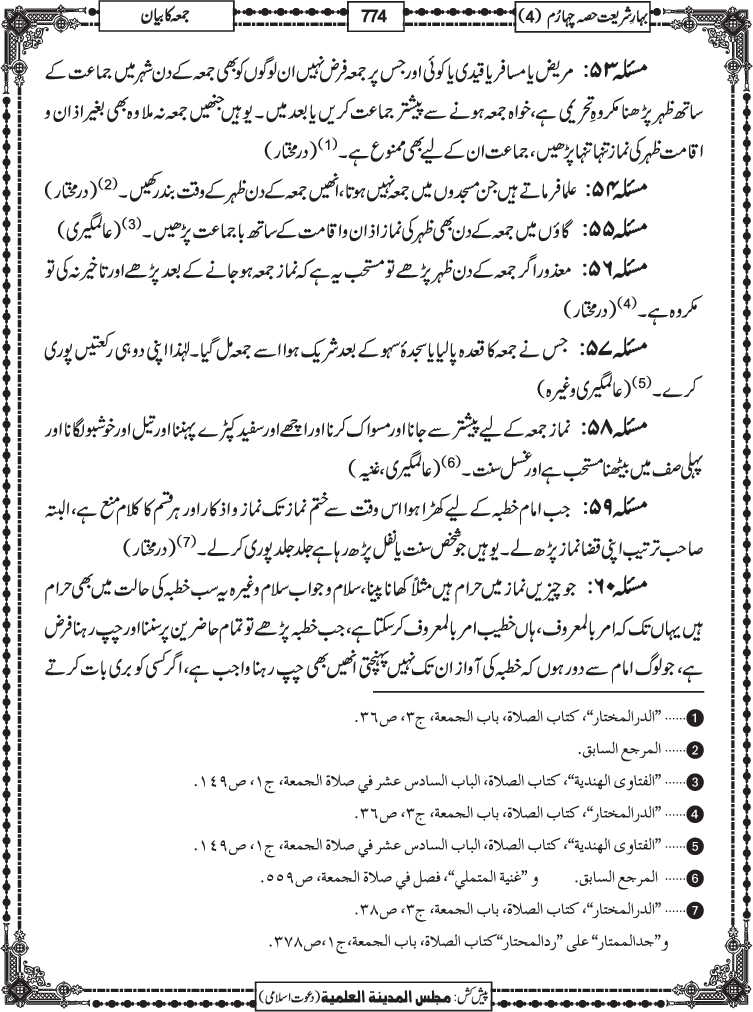 بہار شریعت حصہ چہارم (4)
774
جمعہ کا بیان
مسئلہ ۵۳: مریض یا مسافر یا قیدی یا کوئی اور جس پر جمعہ فرض نہیں ان لوگوں کو بھی جمعہ کے دن شہر میں جماعت کے
ساتھ ظہر پڑھنا مکروہِ تحریمی ہے، خواہ جمعہ ہونے سے پیشتر جماعت کریں یا بعد میں۔ یوہیں جنھیں جمعہ نہ ملا وہ بھی بغیر اذان و
اقامت ظہر کی نماز تنہا تنہا پڑھیں، جماعت ان کے لیے بھی ممنوع ہے۔(1) (درمختار)
مسئلہ ۵۴: علما فرماتے ہیں جن مسجدوں میں جمعہ نہیں ہوتا، انھیں جمعہ کے دن ظہر کے وقت بند رکھیں۔(2) (درمختار)
مسئلہ ۵۵: گاؤں میں جمعہ کے دن بھی ظہر کی نماز اذان و اقامت کے ساتھ باجماعت پڑھیں۔(3) (عالمگیری)
مسئلہ ۵۶: معذور اگر جمعہ کے دن ظہر پڑھے تو مستحب یہ ہے کہ نماز جمعہ ہو جانے کے بعد پڑھے اور تاخیر نہ کی تو
مکروہ ہے۔(4) (درمختار)
مسئلہ ۵۷: جس نے جمعہ کا قعدہ پا لیا یا سجدۂ سہو کے بعد شریک ہوا اسے جمعہ مل گیا۔ لہٰذا اپنی دو ہی رکعتیں پوری
کرے۔(5) (عالمگیری وغیرہ)
مسئلہ ۵۸: نماز جمعہ کے لیے پیشتر سے جانا اور مسواک کرنا اور اچھے اور سفید کپڑے پہننا اور تیل اور خوشبو لگانا اور
پہلی صف میں بیٹھنا مستحب ہے اور غسل سنت۔(6) (عالمگیری، غنیہ)
مسئلہ ۵۹: جب امام خطبہ کے لیے کھڑا ہوا اس وقت سے ختم نماز تک نماز و اذکار اور ہر قسم کا کلام منع ہے، البتہ
صاحب ترتیب اپنی قضا نماز پڑھ لے۔ یوہیں جو شخص سنت یا نفل پڑھ رہا ہے جلد جلد پوری کر لے۔(7) (درمختار)
مسئلہ ۶۰: جو چیزیں نماز میں حرام ہیں مثلاً کھانا پینا، سلام و جواب سلام وغیرہ یہ سب خطبہ کی حالت میں بھی حرام
ہیں یہاں تک کہ امر بالمعروف، ہاں خطیب امر بالمعروف کر سکتا ہے، جب خطبہ پڑھے تو تمام حاضرین پر سننا اور چپ رہنا فرض
ہے، جو لوگ امام سے دور ہوں کہ خطبہ کی آواز ان تک نہیں پہنچتی انھیں بھی چپ رہنا واجب ہے، اگر کسی کو بری بات کرتے
1 ...... ”الدرالمختار“، کتاب الصلاة، باب الجمعة، ج۳، ص۳٦.
2 ...... المرجع السابق.
3 ...... ”الفتاوی الهندیة“، کتاب الصلاة، الباب السادس عشر في صلاة الجمعة، ج۱، ص۱٤۹.
4 ...... ”الدرالمختار“، کتاب الصلاة، باب الجمعة، ج۳، ص۳٦.
5 ...... ”الفتاوی الهندیة“، کتاب الصلاة، الباب السادس عشر في صلاة الجمعة، ج۱، ص۱٤۹.
6 ...... المرجع السابق. و ”غنیة المتملي“، فصل في صلاة الجمعة، ص٥٥۹.
7 ...... ”الدرالمختار“، کتاب الصلاة، باب الجمعة، ج۳، ص۳۸.
و”جدالممتار“ علی ”ردالمحتار“ کتاب الصلاة، باب الجمعة، ج۱، ص۳۷۸.
پیش کش: مجلس المدینة العلمیة (دعوت اسلامی)